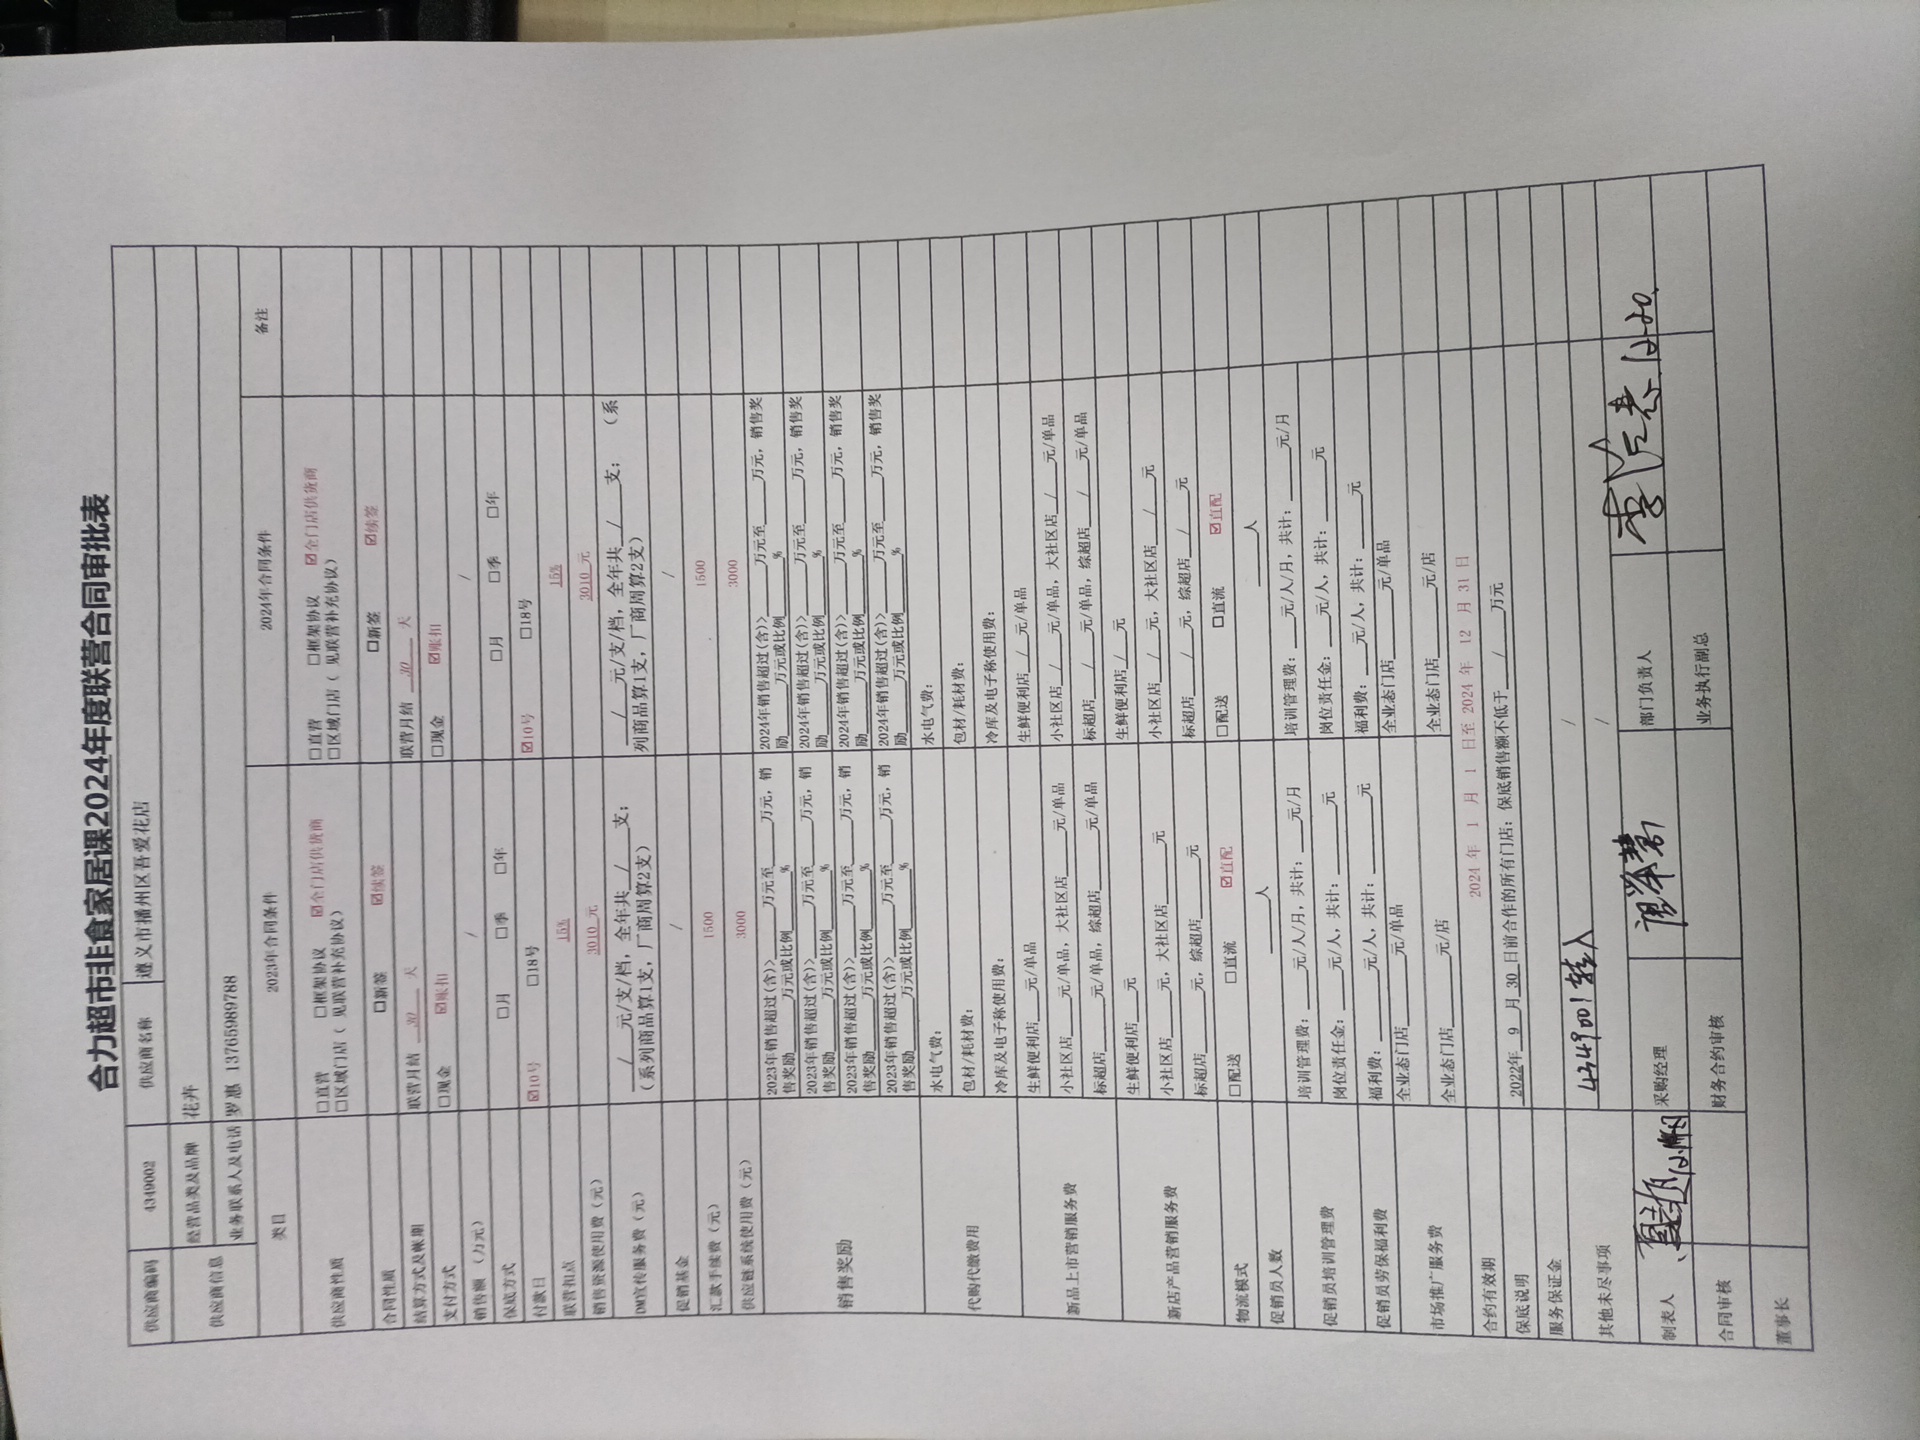 合力超市非食家居课2024年度联营合同审批表
供应商编码 4349002 供应商名称 遵义市播州区吾爱花店
供应商信息 经营品类及品牌 花卉
业务联系人及电话 罗惠 13765989788
类目 2023年合同条件 2024年合同条件 备注
供应商性质 □直营 □框架协议 ☑全门店供货商 □直营 □框架协议 ☑全门店供货商
□区域门店（ 见联营补充协议） □区域门店（ 见联营补充协议）
合同性质 □新签 ☑续签 □新签 ☑续签
结算方式及帐期 联营月结 30 天 联营月结 30 天
支付方式 □现金 ☑账扣 □现金 ☑账扣
销售额 （万元） / /
保底方式 □月 □季 □年 □月 □季 □年
付款日 ☑10号 □18号 ☑10号 □18号
联营扣点 15% 15%
销售资源使用费（元） 3010 元 3010 元
DM宣传服务费（元） / 元/支/档，全年共 / 支； / 元/支/档，全年共 / 支； （系
（系列商品算1支，厂商周算2支） 列商品算1支，厂商周算2支）
促销基金 / /
汇款手续费（元） 1500 1500
供应链系统使用费（元） 3000 3000
销售奖励 2023年销售超过(含)>____万元至____万元，销 2024年销售超过(含)>____万元至____万元，销售奖
售奖励____万元或比例____% 励____万元或比例____%
2023年销售超过(含)>____万元至____万元，销 2024年销售超过(含)>____万元至____万元，销售奖
售奖励____万元或比例____% 励____万元或比例____%
2023年销售超过(含)>____万元至____万元，销 2024年销售超过(含)>____万元至____万元，销售奖
售奖励____万元或比例____% 励____万元或比例____%
2023年销售超过(含)>____万元至____万元，销 2024年销售超过(含)>____万元至____万元，销售奖
售奖励____万元或比例____% 励____万元或比例____%
代购代缴费用 水电气费： 水电气费：
包材/耗材费： 包材/耗材费：
冷库及电子称使用费： 冷库及电子称使用费：
新品上市营销服务费 生鲜便利店____元/单品 生鲜便利店 / 元/单品
小社区店____元/单品，大社区店____元/单品 小社区店 / 元/单品，大社区店 / 元/单品
标超店____元/单品，综超店____元/单品 标超店 / 元/单品，综超店 / 元/单品
新店产品营销服务费 生鲜便利店____元 生鲜便利店 / 元
小社区店____元，大社区店____元 小社区店 / 元，大社区店 / 元
标超店____元，综超店____元 标超店 / 元，综超店 / 元
物流模式 □配送 □直流 ☑直配 □配送 □直流 ☑直配
促销员人数 ____人 ____人
促销员培训管理费 培训管理费：____元/人/月，共计：____元/月 培训管理费：____元/人/月，共计：____元/月
岗位责任金：____元/人，共计：____元 岗位责任金：____元/人，共计：____元
促销员劳保福利费 福利费：____元/人，共计：____元 福利费：____元/人，共计：____元
市场推广服务费 全业态门店____元/单品 全业态门店____元/单品
全业态门店____元/店 全业态门店____元/店
合约有效期 2024 年 1 月 1 日至 2024 年 12 月 31 日
保底说明 2022年 9 月 30 日前合作的所有门店；保底销售额不低于 / 万元
服务保证金 /
其他未尽事项 4349001转入 /
制表人 采购经理 部门负责人 12-20.
合同审核 财务合约审核 业务执行副总
董事长